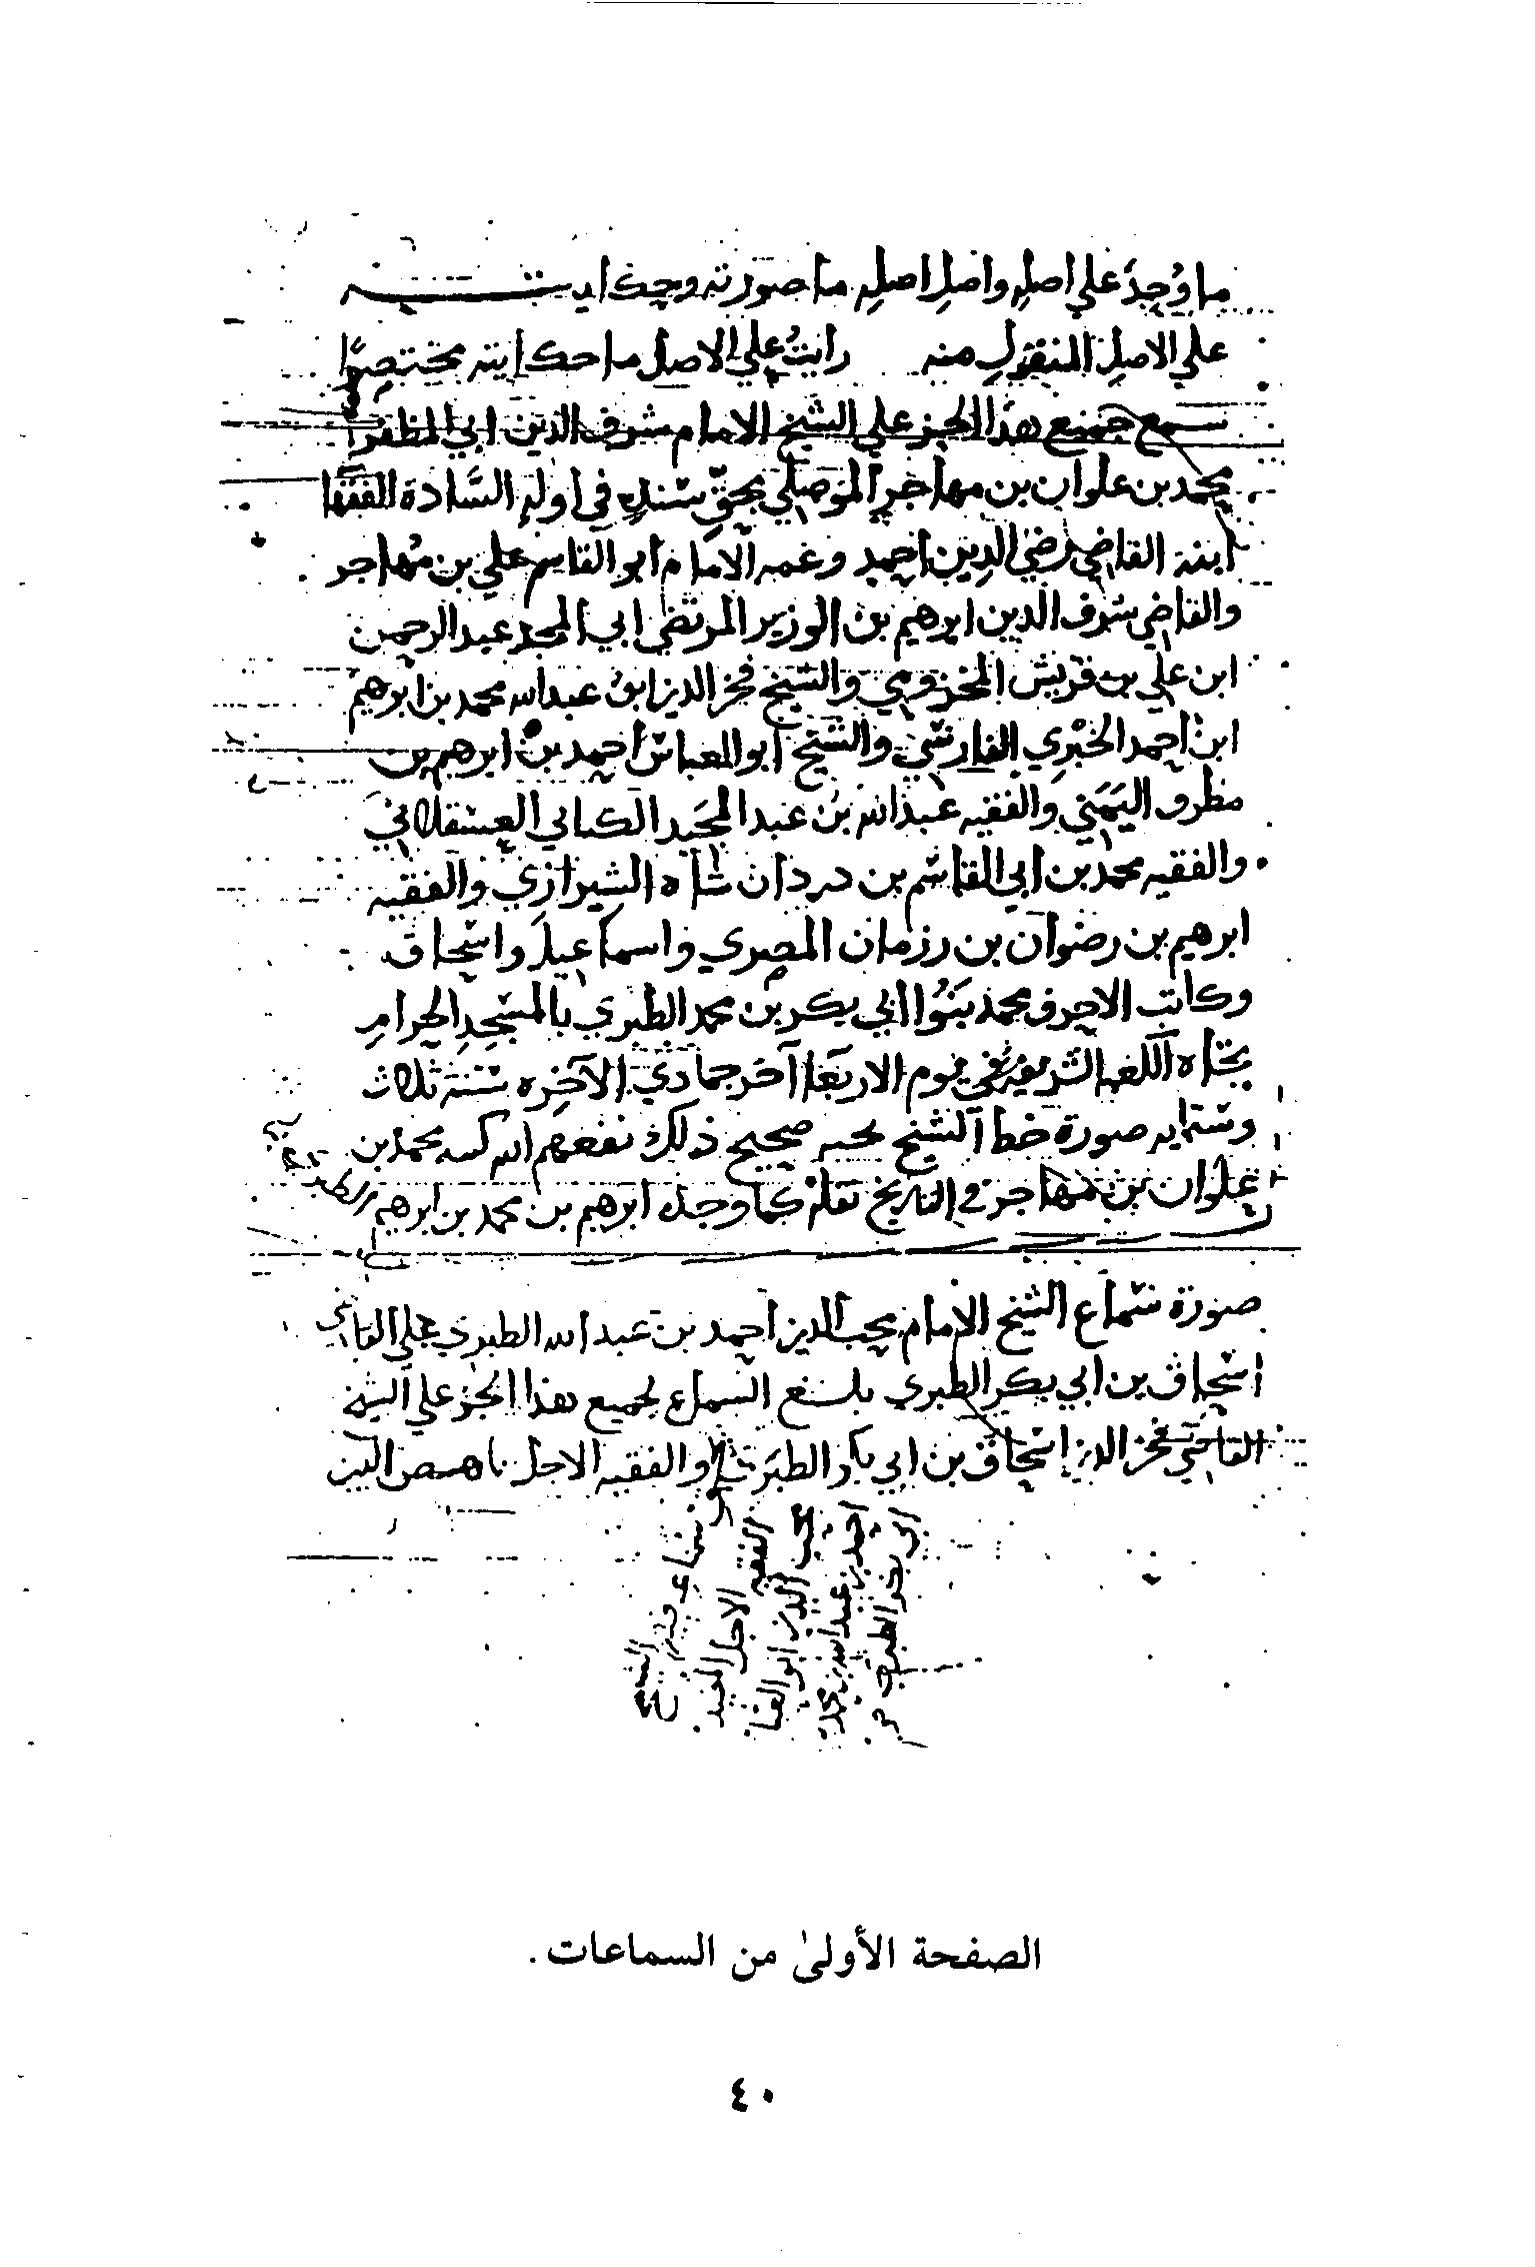 ما وُجِدَ علي اصلِه واصلِ اصلِه ما صورته وحكايته
علي الاصلِ المنقولِ منه رايتُ علي الاصل ما حكايته مختصرًا
سمع جميع هذا الجزء علي الشيخ الامام شرف الدين ابي المظفر
محمد بن علوان بن مهاجر الموصلي بحقِّ سنده في اوله السَّادة الفقها
ابنه القاضي رضي الدين احمد وعمه الامام ابو القاسم علي بن مُهاجر
والقاضي شرف الدين ابرهيم بن الوزير المرتضي ابي المجد عبد الرحمن
ابن علي بن قريش المخزومي والشيخ فخر الدين ابو عبد الله محمد بن ابرهيم
ابن احمد الخَبْرِي الفارسي والشيخ ابو العباس احمد بن ابرهيم بن
مطرف اليَمَني والفقيه عبد الله بن عبد المجيد الكناني العسقلاني
والفقيه محمد بن ابي القاسم بن شاه الشيرازي والفقيه
ابرهيم بن رضوان بن رزمان المصري واسماعيل واسحاق
وكاتب الاحرف محمد بَنُوا ابي بكر بن محمد الطبري بالمسْجِدِ الحرامِ
تجاه الكعبه الشريفه في يوم الاربعا آخر جمادي الآخِره سنة ثلاث
وستمايه صورة خط الشيخ صحيح ذلك نفعهم الله كتبه محمد بن
علوان بن مُهاجر في التاريخ نقله كما وجده ابرهيم بن محمد بن ابرهيم الطبري
صورة سماع الشيخ الامام محب الدين احمد بن عبد الله الطبري علي القاضي
اسحاق بن ابي بكر الطبري بلغ السماع لجميع هذا الجزء علي الشيخ
القاضي فخر الدين اسحاق بن ابي بكر الطبري والفقيه الاجل الدين
سماع فيه الشيخ
الفقيه الاجل المفيد
محب الدين ابو العباس
احمد بن عبد الله بن محمد بن
ابي بكر الطبري
الصفحة الأولىٰ من السماعات .
٤٠